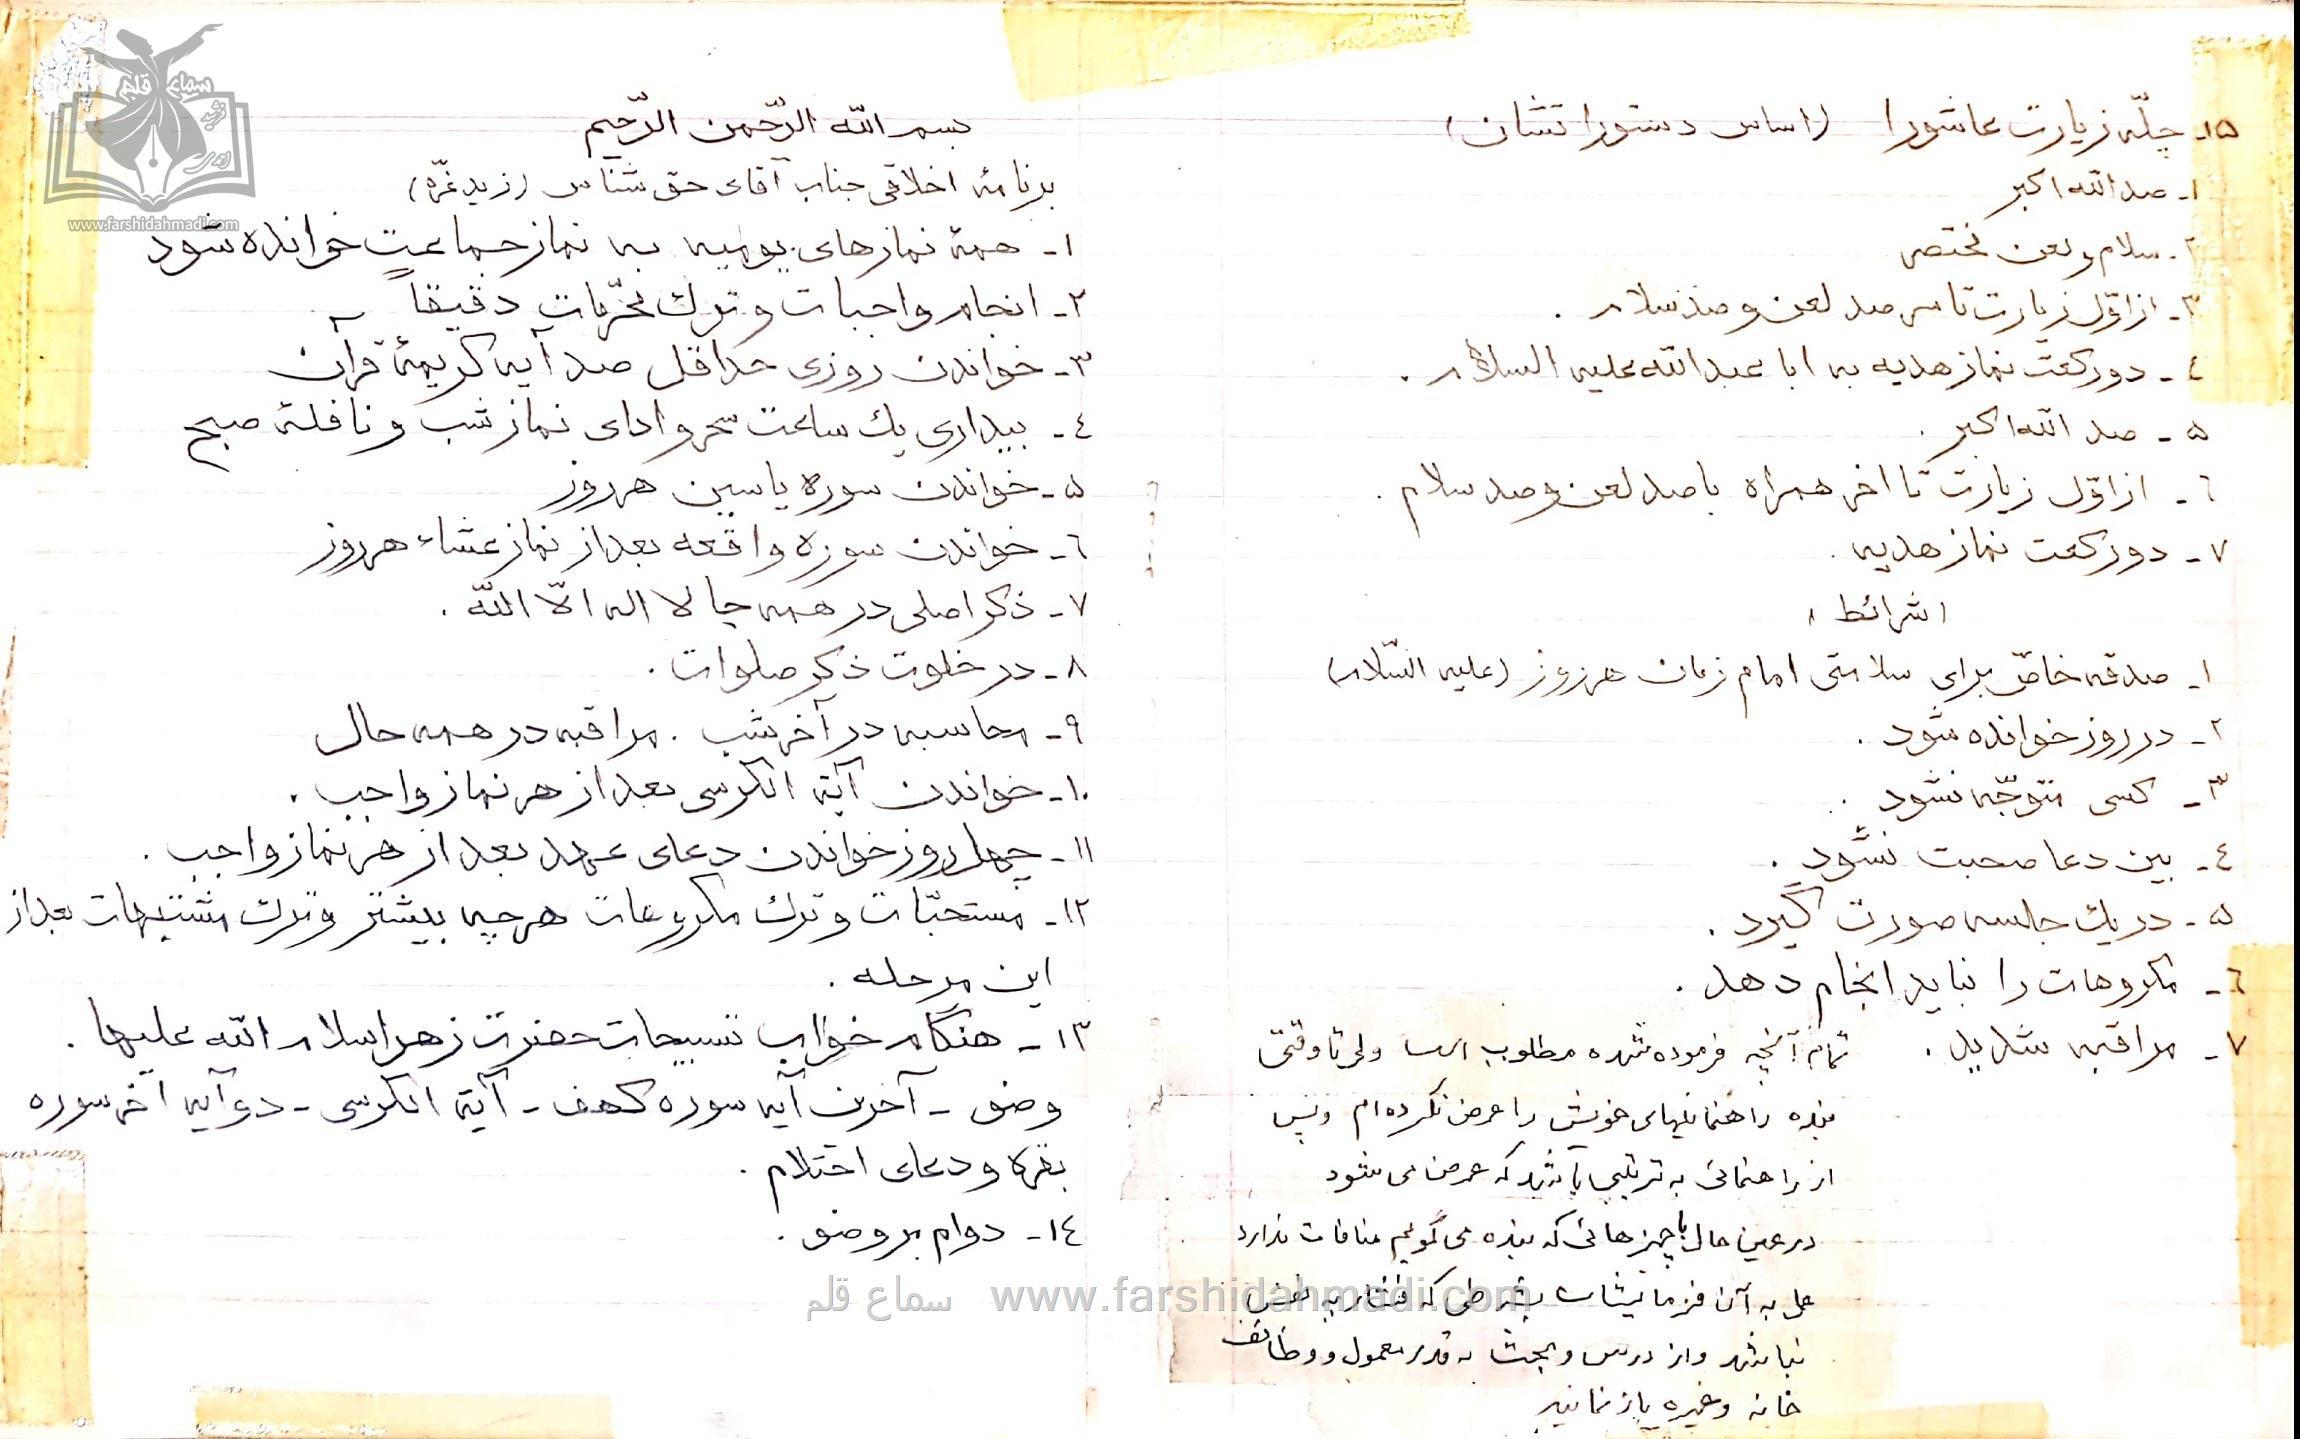 بسم الله الرّحمن الرّحیم
برنامهٔ اخلاقی جناب آقای حق شناس (زید عزّه)
۱- همهٔ نمازهای یومیه به نماز جماعت خوانده شود
۲- انجام واجبات و ترك محرّمات دقیقاً
۳- خواندن روزی حداقل صد آیه کریمهٔ قرآن
٤- بیداری یك ساعت سحر و ادای نماز شب و نافلهٔ صبح
۵- خواندن سوره یاسین هر روز
٦- خواندن سوره واقعه بعد از نماز عشاء هر روز
۷- ذکر اصلی در همه جا لا اله الّا الله .
۸- در خلوت ذکر صلوات .
۹- محاسبه در آخر شب . مراقبه در همه حال
۱۰- خواندن آیة الکرسی بعد از هر نماز واجب .
۱۱- چهل روز خواندن دعای عهد بعد از هر نماز واجب .
۱۲- مستحبّات و ترك مکروهات هر چه بیشتر و ترك مشتبهات بعد از
این مرحله .
۱۳- هنگام خواب تسبیحات حضرت زهرا سلام الله علیها .
وضو - آخرین آیه سوره کهف - آیة الکرسی - دو آیه آخر سوره
بقره و دعای احتلام .
۱٤- دوام بر وضو .
۱۵- چلّه زیارت عاشورا (اساس دستوراتشان)
۱- صد الله اکبر
۲- سلام و لعن مختصر
۳- از اوّل زیارت تا سر صد لعن و صد سلام .
٤- دو رکعت نماز هدیه به ابا عبدالله علیه السلام .
۵- صد الله اکبر .
٦- از اوّل زیارت تا آخر همراه با صد لعن و صد سلام .
۷- دو رکعت نماز هدیه .
(شرائط)
۱- صدقه خاصّ برای سلامتی امام زمان هر روز (علیه السّلام)
۲- در روز خوانده شود .
۳- کسی متوجّه نشود .
٤- بین دعا صحبت نشود .
۵- در یك جلسه صورت گیرد .
٦- مکروهات را نباید انجام دهد .
۷- مراقبه شدید .
تمام آنچه فرموده شده مطلوب است ولی تا وقتی
بنده راهنمائیهای خویش را عرض نکرده ام و پس
از راهنمائی به ترتیبی باشید که عرض می شود
در عین حال با چیزهائی که بنده می گویم منافات ندارد
عمل به آن فرمایشات بشرطی که فشار به نفس
نباشد و از درس و بحث به قدر معمول و وظائف
خانه و غیره باز نمانید
سماع قلم
www.farshidahmadi.com
سماع قلم www.farshidahmadi.com